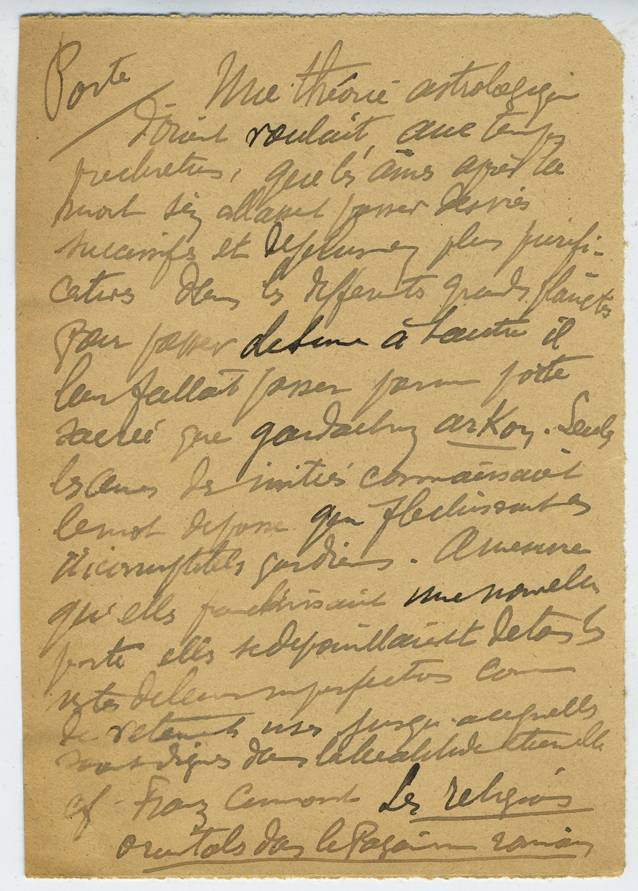 Porte
Une théorie astrologique
d'orient voulait aux temps
que les âmes après la
mort s'en allassent passer des vies
successives et de plus en plus purifi-
catives dans les différents grands planètes
pour passer de l'une à l'autre il
leur fallait passer par une porte
sacrée que gardait un arkon. Seules
les âmes des initiés connaissaient
le mot de passe qui fléchissait les
incorruptibles gardiens. A mesure
qu'elles franchissaient une nouvelle
porte elles se dépouillaient de tous les
restes de leurs imperfections comme
de vetements usés jusqu'a ce qu'elles
soient dignes dans la béatitude éternelle
cf. Franz Cumont Les religions
orientales dans le Paganisme romain